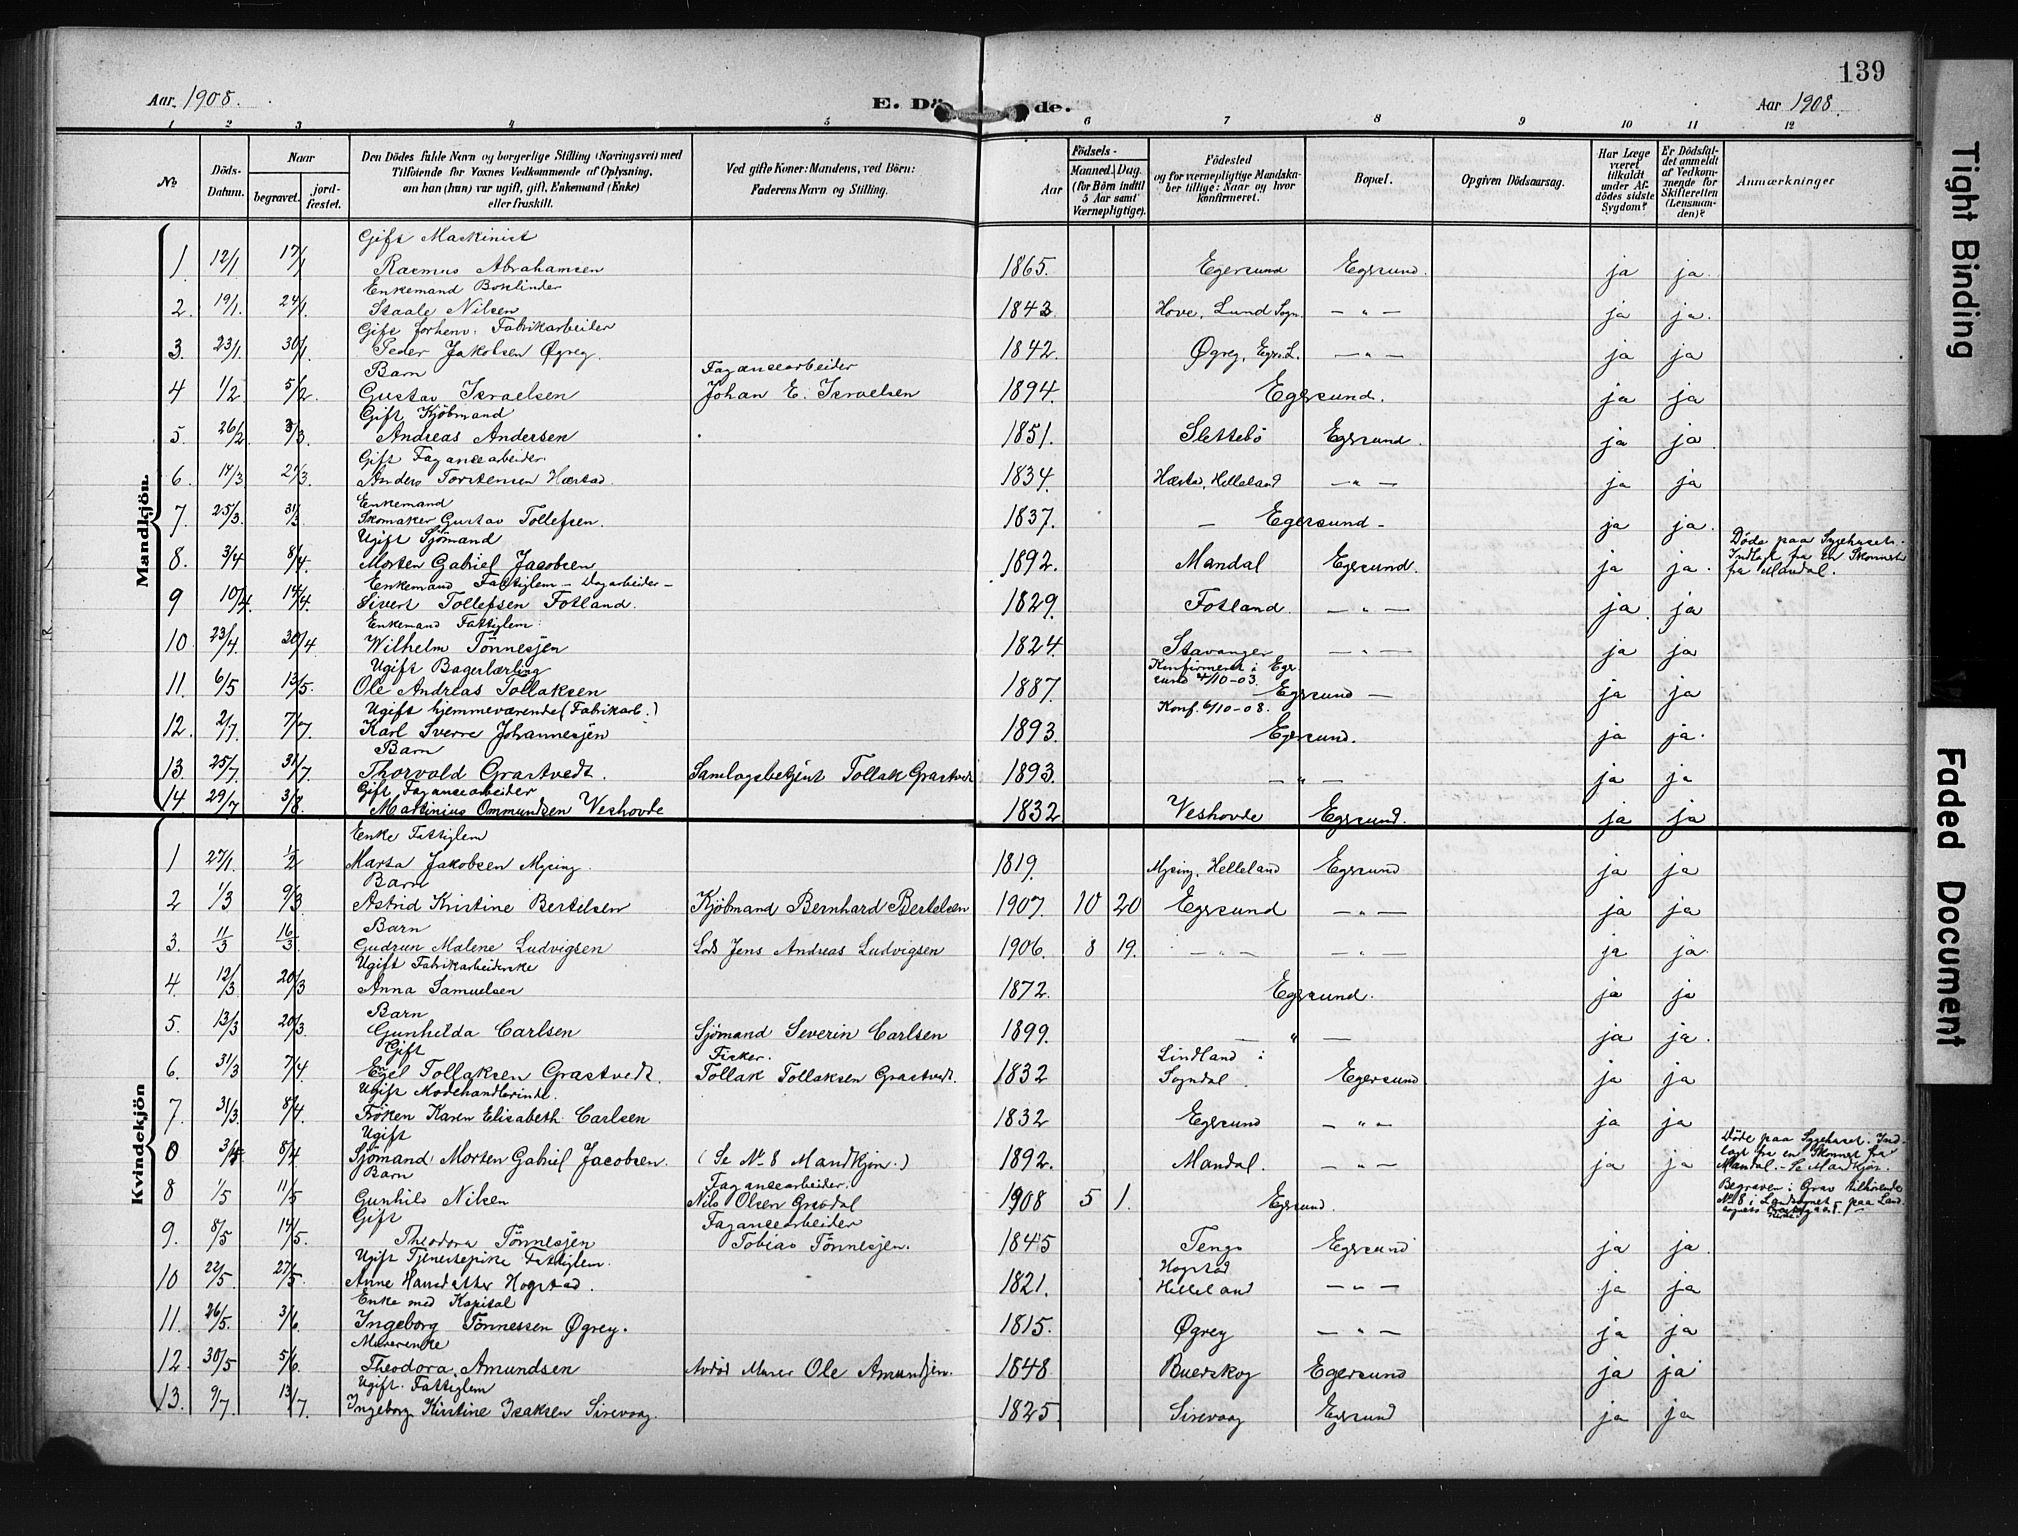 139
Aar. 1908. E. Dö de. Aar 1908
1 2 3 4 5 6 7 8 9 10 11 12
No. Döds-Datum. Naar begravet. jord-fæstet. Den Dödes fulde Navn og borgerlige Stilling (Næringsvei) med Tilföiende for Voxnes Vedkommende af Oplysning, om han (hun) var ugift, gift, Enkemand (Enke) eller fraskilt. Ved gifte Koner: Mandens, ved Börn: Faderens Navn og Stilling. Aar Födsels- Maaned. Dag (for Börn indtil 5 Aar samt Værnepligtige). Födested og for værnepligtige Mandska-ber tillige: Naar og hvor konfirmeret. Bopæl. Opgiven Dödsaarsag. Har Læge været tilkaldt under Af-dödes sidste Sygdom? Er Dödsfal-det anmeldt af Vedkom-mende for Skifteretten (Lensman-den)? Anmærkninger
Mandkjön.
Gift Maskinist
1. 12/1 17/1 Rasmus Abrahamsen 1865. Egersund Egersund. ja ja.
Enkemand Boklinder
2. 19/1. 24/1. Staale Nilsen 1843 Hove, Lund Sogn. — " — ja ja.
Gift forhenv. Fabrikarbeider
3. 23/1. 30/1. Peder Jakobsen Øgrey. 1842. Øgrey, Egers. L. — " — ja ja
Barn Fayancearbeider
4 1/2 5/2. Gustav Israelsen Johan E. Israelsen 1894. Egersund. ja ja
Gift Kjöbmand
5. 26/2. 3/3. Andreas Andersen 1851. Slettebö Egersund. ja ja.
Gift Fayancearbeider.
6. 17/3 27/3 Anders Torstensen Hæstad. 1834. Hæstad, Helleland — " — ja ja
Enkemand
7. 25/3. 31/3 Skomaker Gustav Tollefsen. 1837. — Egersund — ja ja.
Ugift Sjömand Döde paa Sygehuset.
8. 3/4 8/4. Morten Gabriel Jacobsen 1892. Mandal Egersund. ja ja. Indlagt fra en Skonnert fra Mandal.
Enkemand Fattiglem — Dagarbeider —
9 10/4. 14/4. Sivert Tollefsen Fotland. 1829. Fotland. — " — ja. ja
Enkemand Fattiglem.
10 23/4. 30/4 Wilhelm Tönnesjen 1824. Stavanger — " — ja ja
Ugift Bagerlærling Konfirmeret i Eger-
11. 6/5 13/5. Ole Andreas Tollaksen 1887. sund 4/10-03. Egersund — ja ja
Ugift hjemmeværende (Fabrikarb.) Konf. 6/10-08.
12. 2/7. 7/7 Karl Sverre Johannesjen 1893. Egersund. ja ja.
Barn
13. 25/7. 31/7. Thorvald Grastvedt. Samlagsbetjent Tollak Grastvedt 1893. — " — ja ja
Gift Fayancearbeider
14. 29/7 3/8. Martinius Ommundsen Veshovde 1832 Veshovde Egersund. ja ja
Kvindekjön
Enke Fattiglem
1 27/1. 1/2 Marta Jakobsen Mjsing. 1819. Mjsing, Helleland Egersund ja ja
Barn
2 1/3. 9/3. Astrid Kristine Bertelsen Kjöbmand Bernhard Bertelsen 1907. 10 20 Egersund — " — ja ja
Barn
3. 11/3 16/3 Gudrun Malene Ludvigsen Lods Jens Andreas Ludvigsen 1906. 8 19. — " — — " — ja ja.
Ugift Fabrikarbeiderske
4. 12/3 20/3 Anna Samuelsen 1872. Egersund. ja ja
Barn
5. 13/3 20/3. Gunhilda Carlsen Sjömand Severin Carlsen 1899. — " — ja ja.
Gift Fisker. Lindland i
6. 31/3 7/4 Egel Tollaksen Grastvedt. Tollak Tollaksen Grastvedt. 1832 Sogndal. Egersund ja ja
Ugift Modehandlerinde.
7. 31/3. 8/4. Fröken Karen Elisabeth Carlsen 1832 Egersund — " — ja ja
Ugift Döde paa Sygehuset. Ind-
0 3/4. 8/4 Sjömand Morten Gabriel Jacobsen. (Se No 8 Mandkjön.) 1892. Mandal. — " — ja ja lagt fra en Skonnert fra Mandal. — Se Mandkjön.
Barn Fayancearbeider. Begraven i Grav tilhörende
8 1/5 11/5 Gunhild Nilsen Nils Olsen Grövdal 1908 5 1. Egersund. No 8 i Landsognet — paa Land-
Gift Fayancearbeider
9. 8/5 14/5. Theodora Tönnesjen Tobias Tönnesjen. 1845 Tengs Egersund ja ja.
Ugift Tjenestepike Fattiglem. Hogstad
10 22/5. 27/5 Anne Hansdatter Hogstad. 1821. Helleland — " — ja ja
Enke med Kapital
11. 26/5. 3/6 Ingeborg Tönnessen Øgrey. 1815. Øgrey — " — ja ja
Murerenke
12. 30/5 5/6 Theodora Amundsen Avdöd Murer Ole Amundsjen. 1848. Buerskog Egersund ja ja
Ugift. Fattiglem
13. 9/7. 13/7. Ingeborg Kirstine Isaksen Sirevaag. 1825 Sirevaag Egersund ja ja
Tight Binding
Faded Document